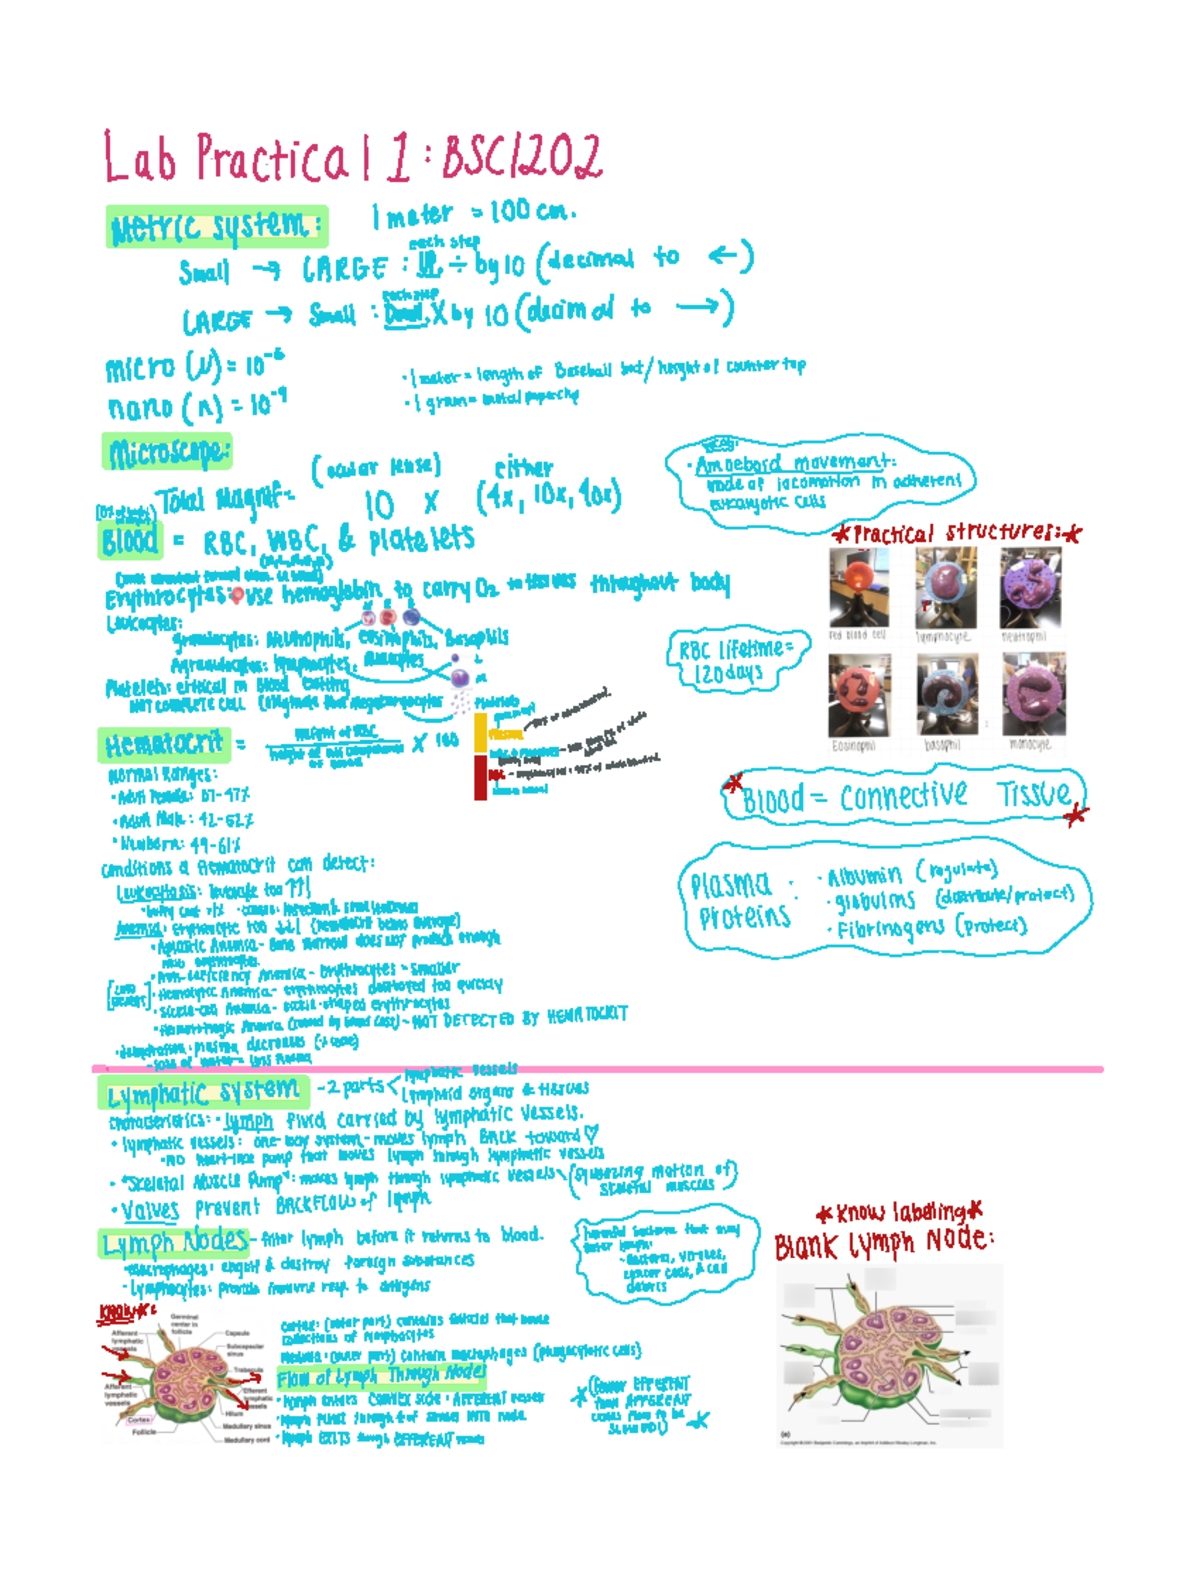 Lab Practical 1: BSC1202
Metric system:
1 meter = 100 cm.
each step
Small → LARGE : UP, ÷ by 10 (decimal to ←)
each step
LARGE → Small : Down, X by 10 (decimal to →)
micro (μ) = 10⁻⁶
nano (n) = 10⁻⁹
· 1 meter = length of Baseball bat / height of counter top
· 1 gram = metal paperclip
Microscope:
(ocular lense) either
Total Magnif = 10 x (4x, 10x, 40x)
· Amoeboid movement:
mode of locomotion in adherent
eukaryotic cells
Blood = RBC, WBC, & platelets
Erythrocytes: use hemoglobin to carry O2 to tissues throughout body
Leukocytes:
granulocytes: Neutrophils, eosinophils, Basophils
Agranulocytes: lymphocytes, monocytes
Platelets: critical in Blood Clotting
NOT COMPLETE CELL
Platelets
RBC lifetime =
120 days
*Practical structures:*
red blood cell
lymphocyte
neutrophil
Eosinophil
basophil
monocyte
Hematocrit = height of RBC x 100
Plasma
RBC
Normal Ranges:
· Adult Female: 37-47%
· Adult Male: 42-52%
· Newborn: 49-61%
*Blood = Connective Tissue*
Plasma Proteins:
· Albumin (regulate)
· globulins (distribute/protect)
· Fibrinogens (protect)
conditions a Hematocrit can detect:
Leukocytosis: leukocyte too ↑↑
Anemia: Erythrocyte too ↓↓
· Aplastic Anemia - Bone marrow does not produce enough
· Iron-deficiency Anemia - erythrocytes = smaller
· Hemolytic Anemia - erythrocytes destroyed too quickly
· Sickle-cell Anemia - sickle-shaped erythrocytes
· Hemorrhagic Anemia (caused by blood loss) - NOT DETECTED BY HEMATOCRIT
· dehydration: plasma decreases
- loss of water = less plasma
Lymphatic system - 2 parts < lymphatic vessels
lymphoid organs & tissues
characteristics: · lymph fluid carried by lymphatic vessels.
· lymphatic vessels: one-way system - moves lymph BACK toward ♡
· NO heart-like pump that moves lymph through lymphatic vessels
· "Skeletal Muscle Pump": moves lymph through lymphatic vessels (squeezing motion of
skeletal muscles)
· Valves prevent BACKFLOW of lymph
Lymph Nodes - filter lymph before it returns to blood.
· Macrophages: engulf & destroy foreign substances
· Lymphocytes: provide immune resp. to antigens
harmful bacteria that may
enter lymph:
- Bacteria, viruses,
cancer cells, & cell
debris
*Know labeling*
Blank Lymph Node:
Germinal
center in
follicle
Afferent
lymphatic
vessels
Capsule
Subcapsular
sinus
Trabecula
Afferent
lymphatic
vessels
Efferent
lymphatic
vessels
Hilum
Cortex
Follicle
Medullary sinus
Medullary cord
Cortex: (outer part) contains follicles that house
collections of lymphocytes
Medulla: (inner part) contain macrophages (phagocytic cells)
Flow of Lymph Through Node:
· lymph enters CONVEX side: AFFERENT vessel
· lymph EXITS through EFFERENT
* (fewer EFFERENT
than AFFERENT
causes flow to be
SLOWED) *
(e)